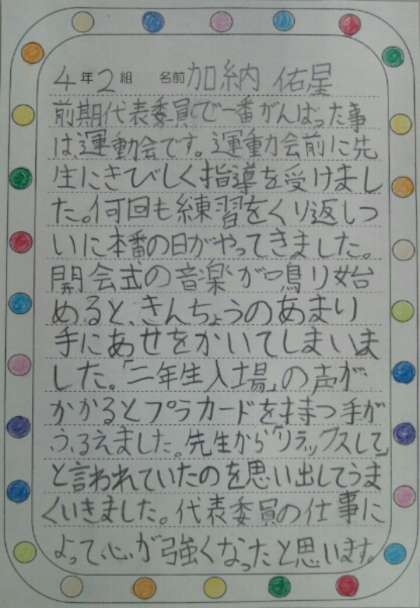 4年2組 名前 加納 佑星
前期代表委員で一番がんばった事
は、運動会です。運動会前に先
生にきびしく指導を受けまし
た。何回も練習をくり返しつ
いに本番の日がやってきました。
開会式の音楽が鳴り始
めると、きんちょうのあまり
手にあせをかいてしまいま
した。「二年生入場」の声が
かかるとプラカードを持つ手が
ふるえました。先生から「リラックスして」
と言われていたのを思い出してうま
くいきました。代表委員の仕事に
よって、心が強くなったと思います。